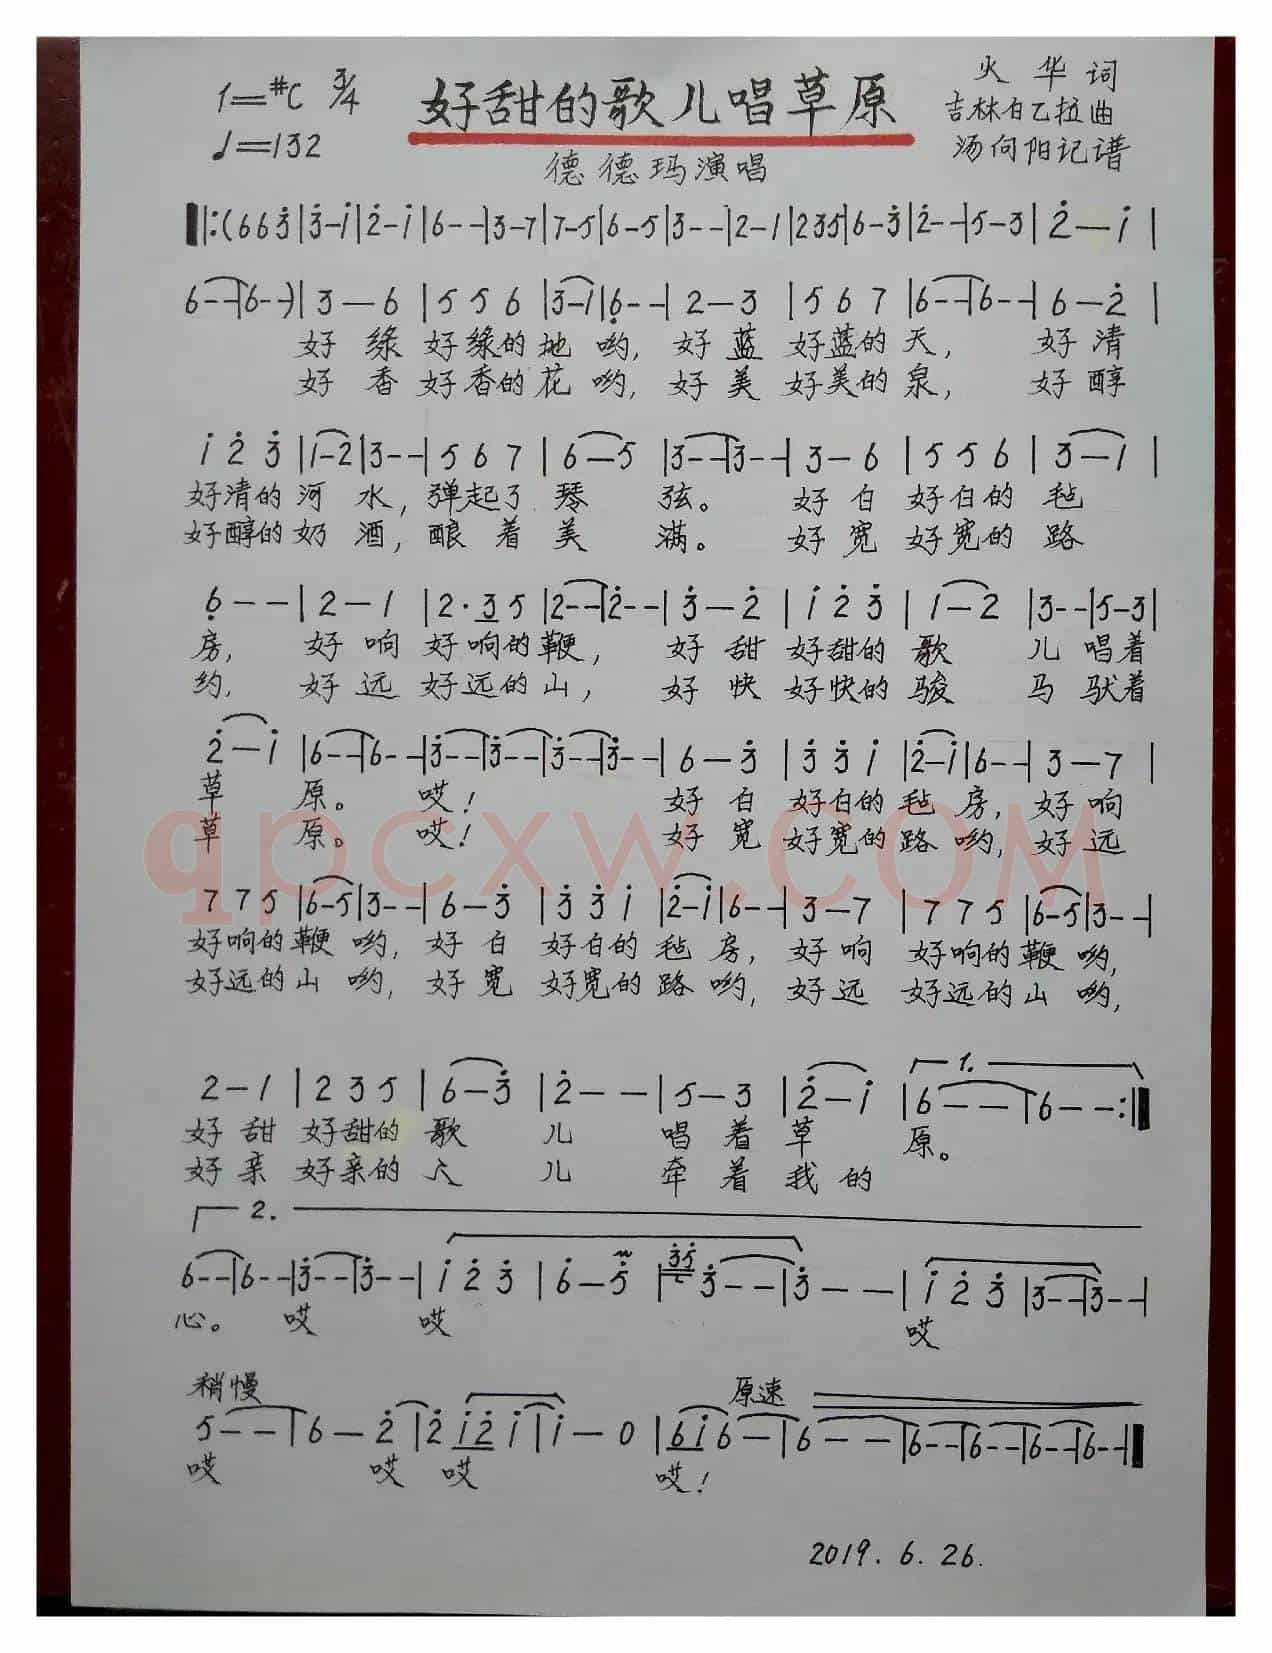 1=#C 3/4
好甜的歌儿唱草原
火华词
吉林白乙拉曲
♩=132
汤向阳记谱
德德玛演唱
|:(6 6 3̇|3̇-i|2̇-i|6--|3-7|7-5|6-5|3--|2-1|2 3 5|6-3̇|2̇--|5-3|2̇-i|
6--|6--)|3-6|5 5 6|3-1|6̣--|2-3|5 6 7|6--|6--|6-2̇|
好绿好绿的地哟，好蓝好蓝的天，好清
好香好香的花哟，好美好美的泉，好醇
i 2̇ 3̇|1-2|3--|5 6 7|6-5|3--|3--|3-6|5 5 6|3-1|
好清的河水，弹起了琴弦。好白好白的毡
好醇的奶酒，酿着美满。好宽好宽的路
6̣--|2-1|2·3 5|2--|2--|3̇-2̇|i 2̇ 3̇|1-2|3--|5-3|
房，好响好响的鞭，好甜好甜的歌儿唱着
约，好远好远的山，好快好快的骏马驮着
2̇-i|6--|6--|3̇--|3̇--|3̇--|3̇--|6-3̇|3̇ 3̇ i|2̇-i|6--|3-7|
草原。哎！好白好白的毡房，好响
草原。哎！好宽好宽的路哟，好远
7 7 5|6-5|3--|6-3̇|3̇ 3̇ i|2̇-i|6--|3-7|7 7 5|6-5|3--|
好响的鞭哟，好白好白的毡房，好响好响的鞭哟，
好远的山哟，好宽好宽的路哟，好远好远的山哟，
1.
2-1|2 3 5|6-3̇|2̇--|5-3|2̇-i|6--|6--:|
好甜好甜的歌儿唱着草原。
好亲好亲的人儿牵着我的
2.
6--|6--|3̇--|3̇--|i 2̇ 3̇|6̇-5̇|3̇5̇ 3̇--|3̇--|i 2̇ 3̇|3--|3̇--|
心。哎哎哎
稍慢 原速
5--|6-2̇|2̇ i2̇ i|i-0|6i6-|6--|6--|6--|6--|6--|
哎哎哎哎！
2019.6.26.
qpcxw.com